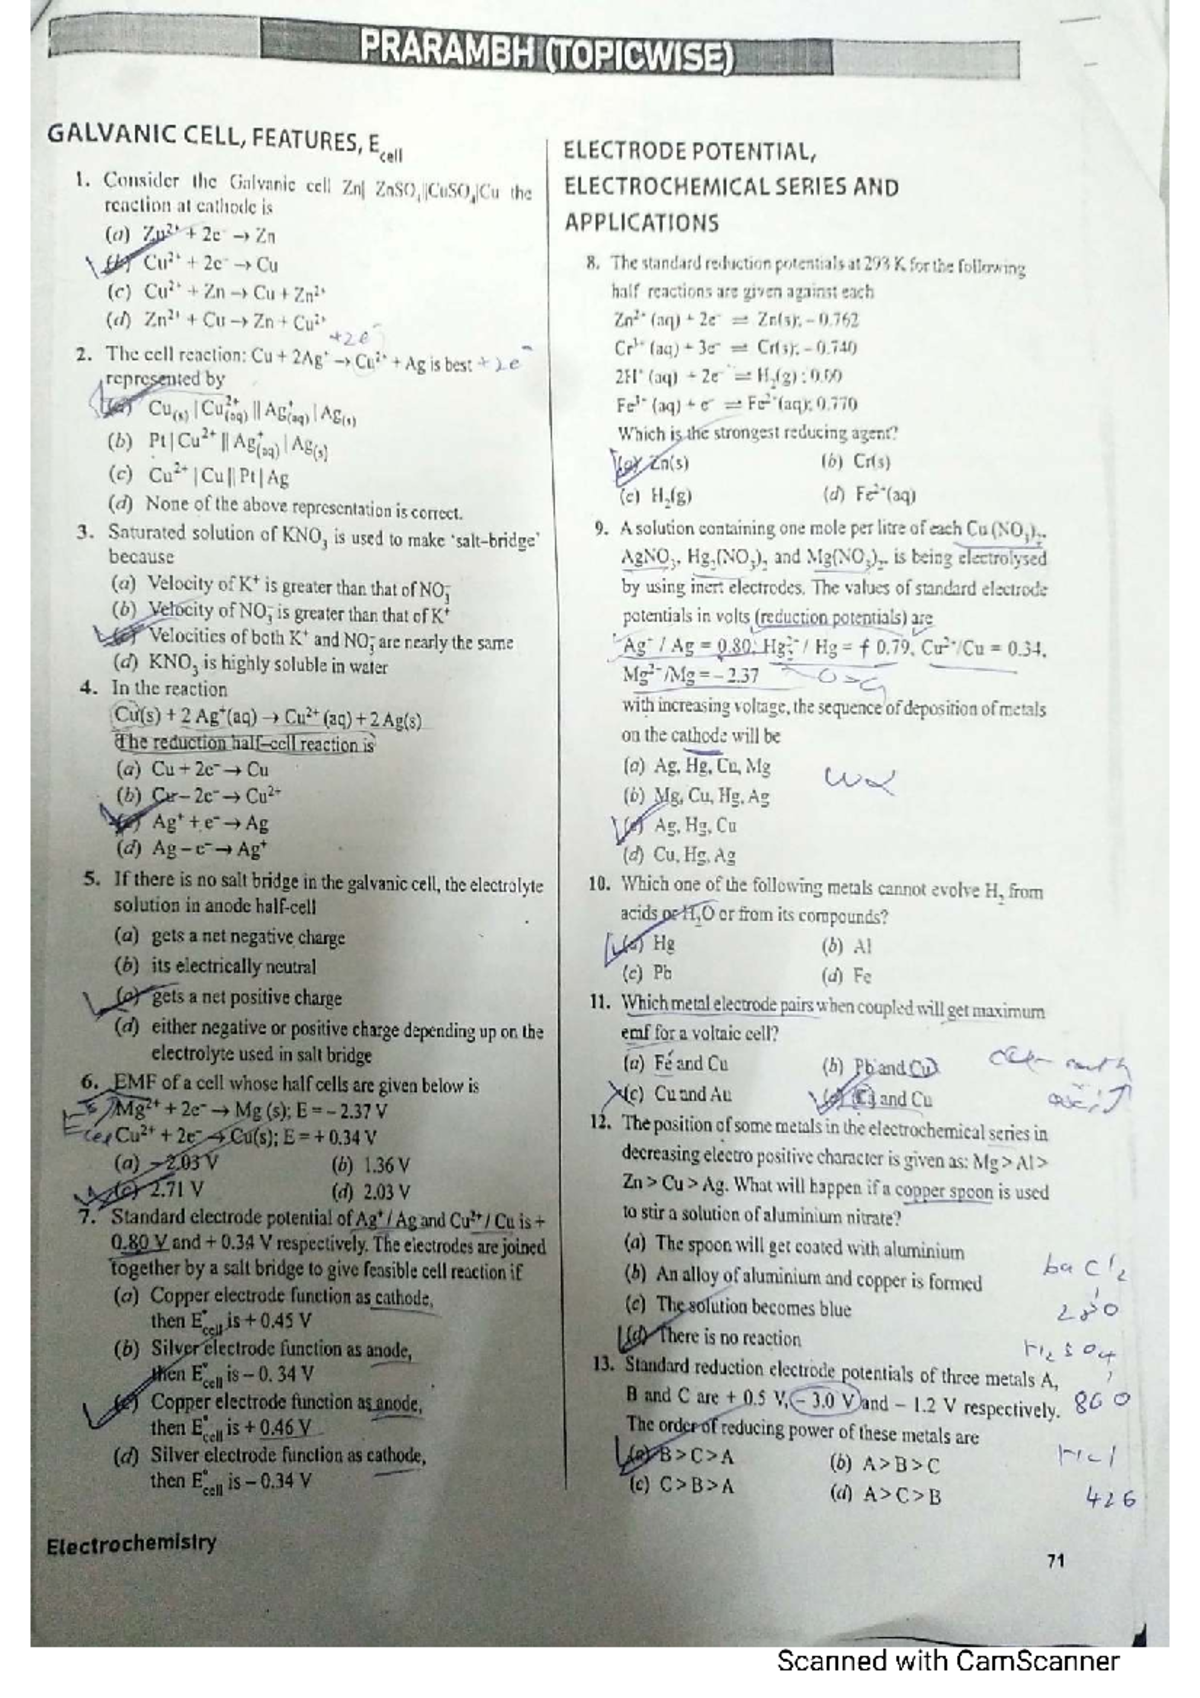 PRARAMBH (TOPICWISE)
GALVANIC CELL, FEATURES, E_cell
1. Consider the Galvanic cell Zn| ZnSO₄||CuSO₄|Cu the
reaction at cathode is
(a) Zn²⁺ + 2e⁻ → Zn
(b) Cu²⁺ + 2e⁻ → Cu
(c) Cu²⁺ + Zn → Cu + Zn²⁺
(d) Zn²⁺ + Cu → Zn + Cu²⁺
+2e⁻
2. The cell reaction: Cu + 2Ag⁺ → Cu²⁺ + Ag is best +2e⁻
represented by
(a) Cu(s) | Cu²⁺(aq) || Ag⁺(aq) | Ag(s)
(b) Pt | Cu²⁺ || Ag⁺(aq) | Ag(s)
(c) Cu²⁺ | Cu || Pt | Ag
(d) None of the above representation is correct.
3. Saturated solution of KNO₃ is used to make 'salt–bridge'
because
(a) Velocity of K⁺ is greater than that of NO₃⁻
(b) Velocity of NO₃⁻ is greater than that of K⁺
(c) Velocities of both K⁺ and NO₃⁻ are nearly the same
(d) KNO₃ is highly soluble in water
4. In the reaction
Cu(s) + 2 Ag⁺(aq) → Cu²⁺ (aq) + 2 Ag(s)
The reduction half–cell reaction is
(a) Cu + 2e⁻ → Cu
(b) Cu – 2e⁻ → Cu²⁺
(c) Ag⁺ + e⁻ → Ag
(d) Ag – e⁻ → Ag⁺
5. If there is no salt bridge in the galvanic cell, the electrolyte
solution in anode half-cell
(a) gets a net negative charge
(b) its electrically neutral
(c) gets a net positive charge
(d) either negative or positive charge depending up on the
electrolyte used in salt bridge
6. EMF of a cell whose half cells are given below is
Mg²⁺ + 2e⁻ → Mg (s); E = – 2.37 V
Cu²⁺ + 2e⁻ → Cu(s); E = + 0.34 V
(a) – 2.03 V (b) 1.36 V
(c) 2.71 V (d) 2.03 V
7. Standard electrode potential of Ag⁺ / Ag and Cu²⁺ / Cu is +
0.80 V and + 0.34 V respectively. The electrodes are joined
together by a salt bridge to give feasible cell reaction if
(a) Copper electrode function as cathode,
then E°cell is + 0.45 V
(b) Silver electrode function as anode,
then E°cell is – 0. 34 V
(c) Copper electrode function as anode,
then E°cell is + 0.46 V
(d) Silver electrode function as cathode,
then E°cell is – 0.34 V
ELECTRODE POTENTIAL,
ELECTROCHEMICAL SERIES AND
APPLICATIONS
8. The standard reduction potentials at 293 K for the following
half reactions are given against each
Zn²⁺ (aq) + 2e⁻ ⇌ Zn(s); – 0.762
Cr³⁺ (aq) + 3e⁻ ⇌ Cr(s); – 0.740
2H⁺ (aq) + 2e⁻ ⇌ H₂(g) ; 0.00
Fe³⁺ (aq) + e⁻ ⇌ Fe²⁺(aq); 0.770
Which is the strongest reducing agent?
(a) Zn(s) (b) Cr(s)
(c) H₂(g) (d) Fe²⁺(aq)
9. A solution containing one mole per litre of each Cu (NO₃)₂,
AgNO₃, Hg₂(NO₃)₂ and Mg(NO₃)₂, is being electrolysed
by using inert electrodes. The values of standard electrode
potentials in volts (reduction potentials) are
Ag⁺ / Ag = 0.80, Hg₂²⁺ / Hg = + 0.79, Cu²⁺/Cu = 0.34,
Mg²⁺/Mg = – 2.37
with increasing voltage, the sequence of deposition of metals
on the cathode will be
(a) Ag, Hg, Cu, Mg
(b) Mg, Cu, Hg, Ag
(c) Ag, Hg, Cu
(d) Cu, Hg, Ag
10. Which one of the following metals cannot evolve H₂ from
acids or H₂O or from its compounds?
(a) Hg (b) Al
(c) Pb (d) Fe
11. Which metal electrode pairs when coupled will get maximum
emf for a voltaic cell?
(a) Fe and Cu (b) Pb and Cu
(c) Cu and Au (d) Ca and Cu
12. The position of some metals in the electrochemical series in
decreasing electro positive character is given as: Mg > Al >
Zn > Cu > Ag. What will happen if a copper spoon is used
to stir a solution of aluminium nitrate?
(a) The spoon will get coated with aluminium
(b) An alloy of aluminium and copper is formed
(c) The solution becomes blue
(d) There is no reaction
13. Standard reduction electrode potentials of three metals A,
B and C are + 0.5 V, – 3.0 V and – 1.2 V respectively.
The order of reducing power of these metals are
(a) B > C > A (b) A > B > C
(c) C > B > A (d) A > C > B
baCl₂
280
H₂SO₄
860
HCl
426
Electrochemistry
71
Scanned with CamScanner